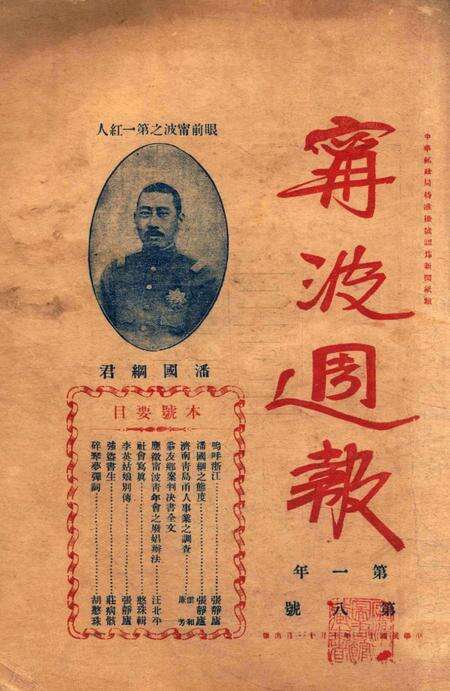 中華郵政局特准掛號認爲新聞紙類
甯波週報
第一年
第八號
眼前甯波之第一紅人
潘國綱君
本號要目
嗚呼浙江……張靜廬
潘國綱之態度……張靜廬
濟南靑島甬人事業之調查……雲和
友鄉案判決書全文
應徵甯波靑年會之廢娼辦法……汪北平
社會寫眞……憨珠輯
李英姑娘別傳……張靜廬
強盜書生……莊病骸
碎琴夢彈詞……胡憨珠